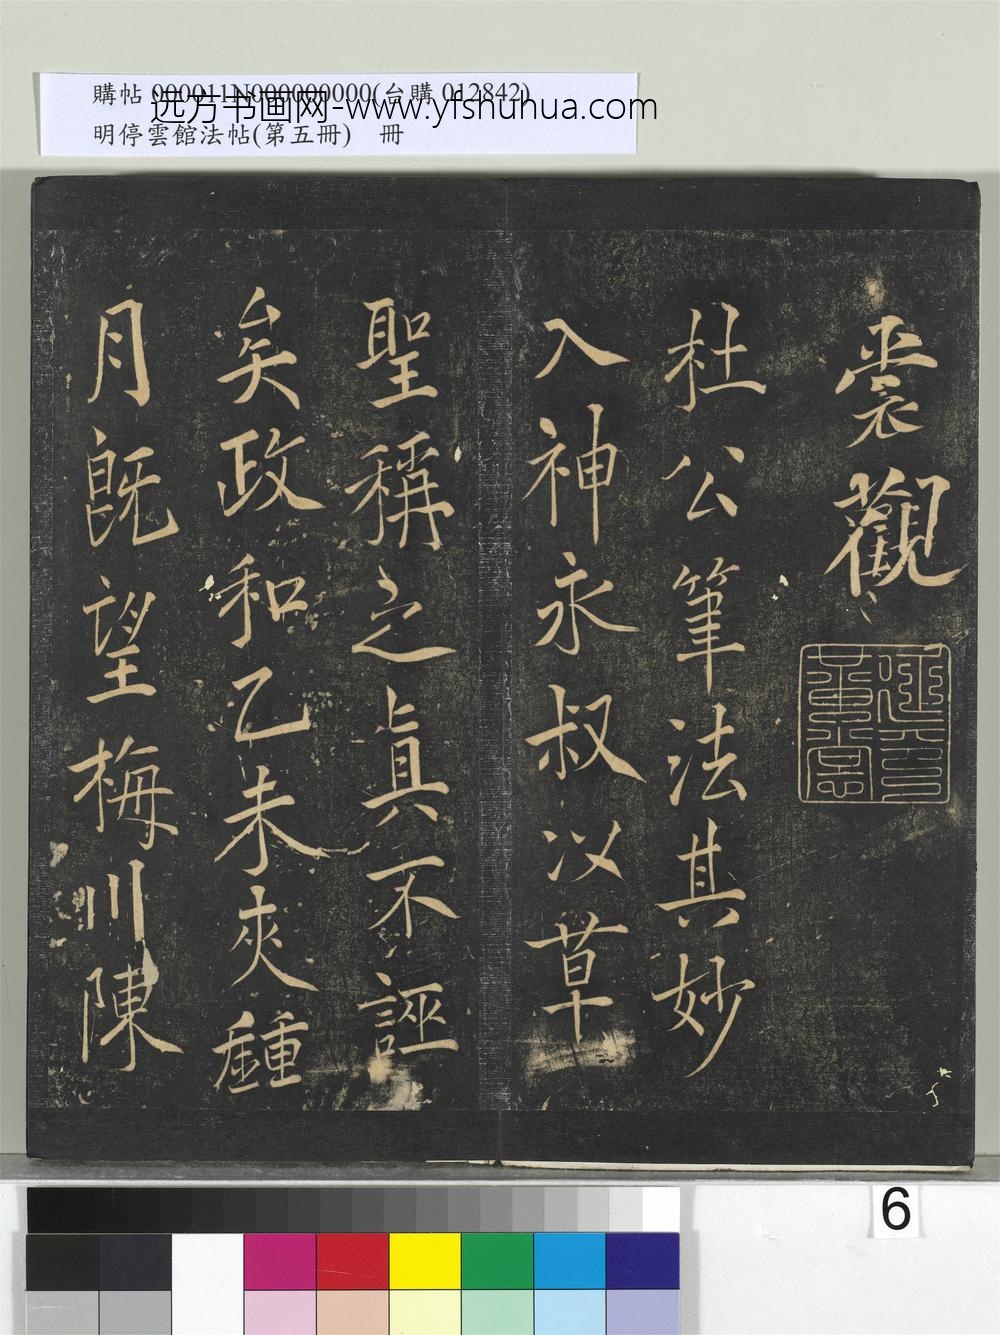 購帖 000011N000000000(台購 012842)
远方书画网-www.yfshuhua.com
明停雲館法帖(第五冊) 冊
裳觀
杜公筆法其妙
入神永叔以草
聖稱之真不誣
矣政和乙未夾鍾
月既望梅川陳
6